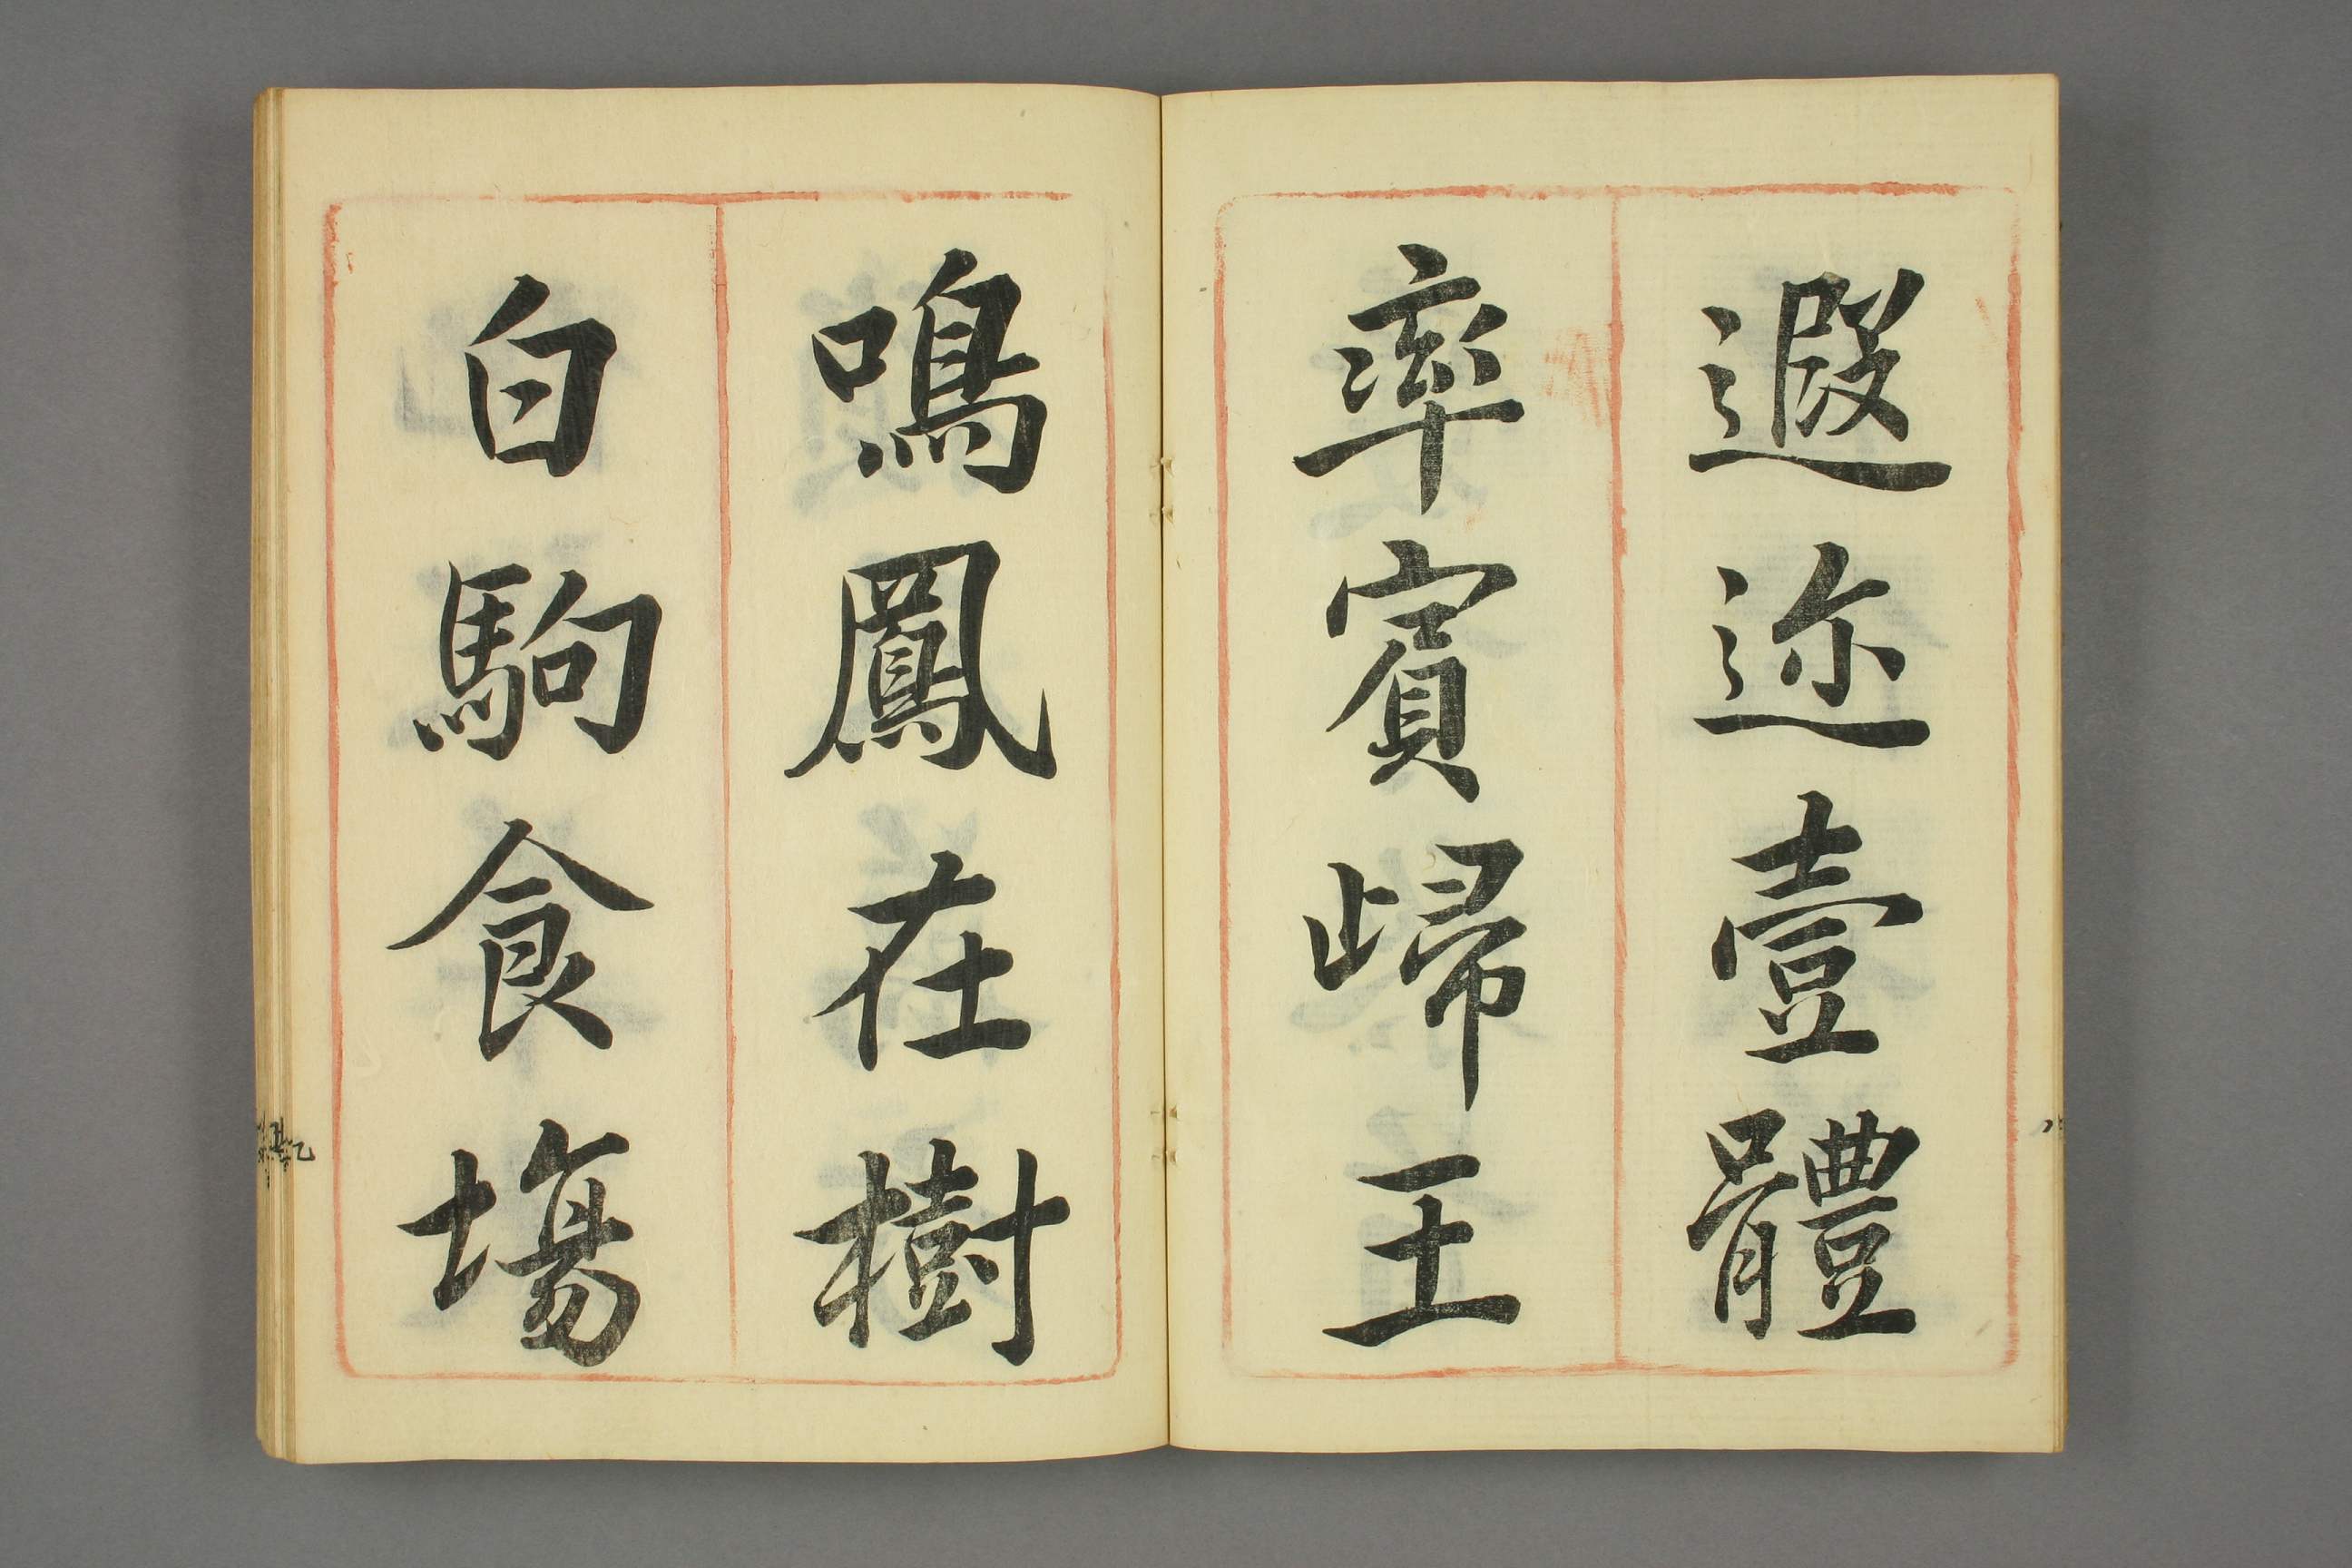 遐迩壹體
率賔歸王
鳴鳳在樹
白駒食塲